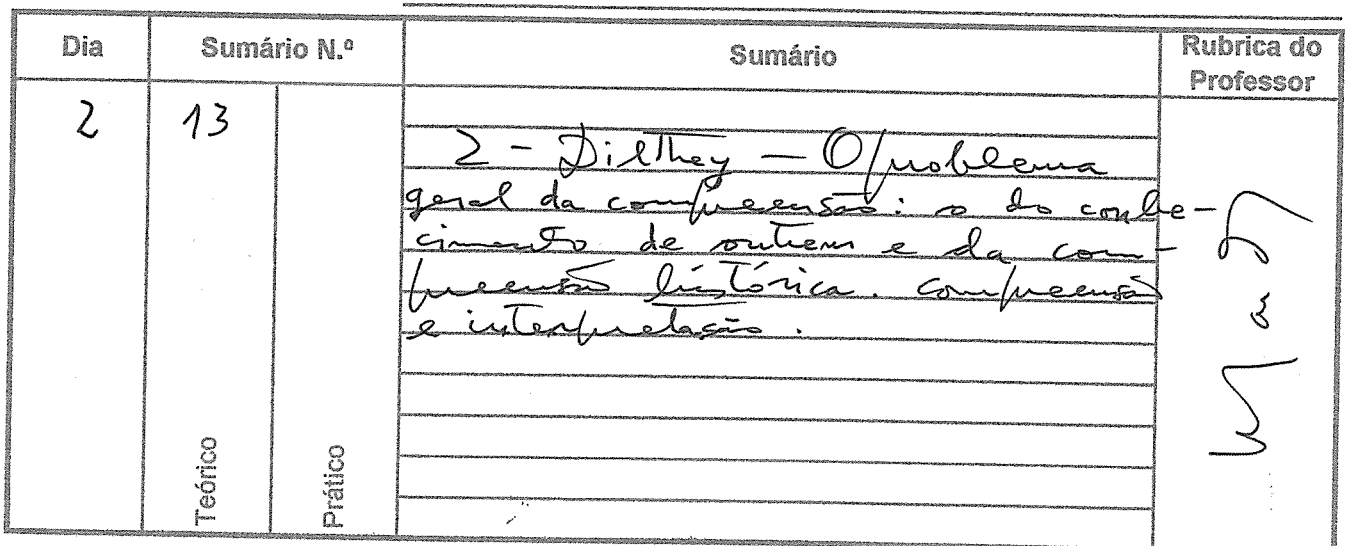 Dia Sumário N.º Sumário Rubrica do Professor
2 13
2 - Dilthey - O problema
geral da compreensão: o do conhe-
cimento de outrem e da com-
preensão histórica. Compreensão
e interpretação.
Teórico
Prático